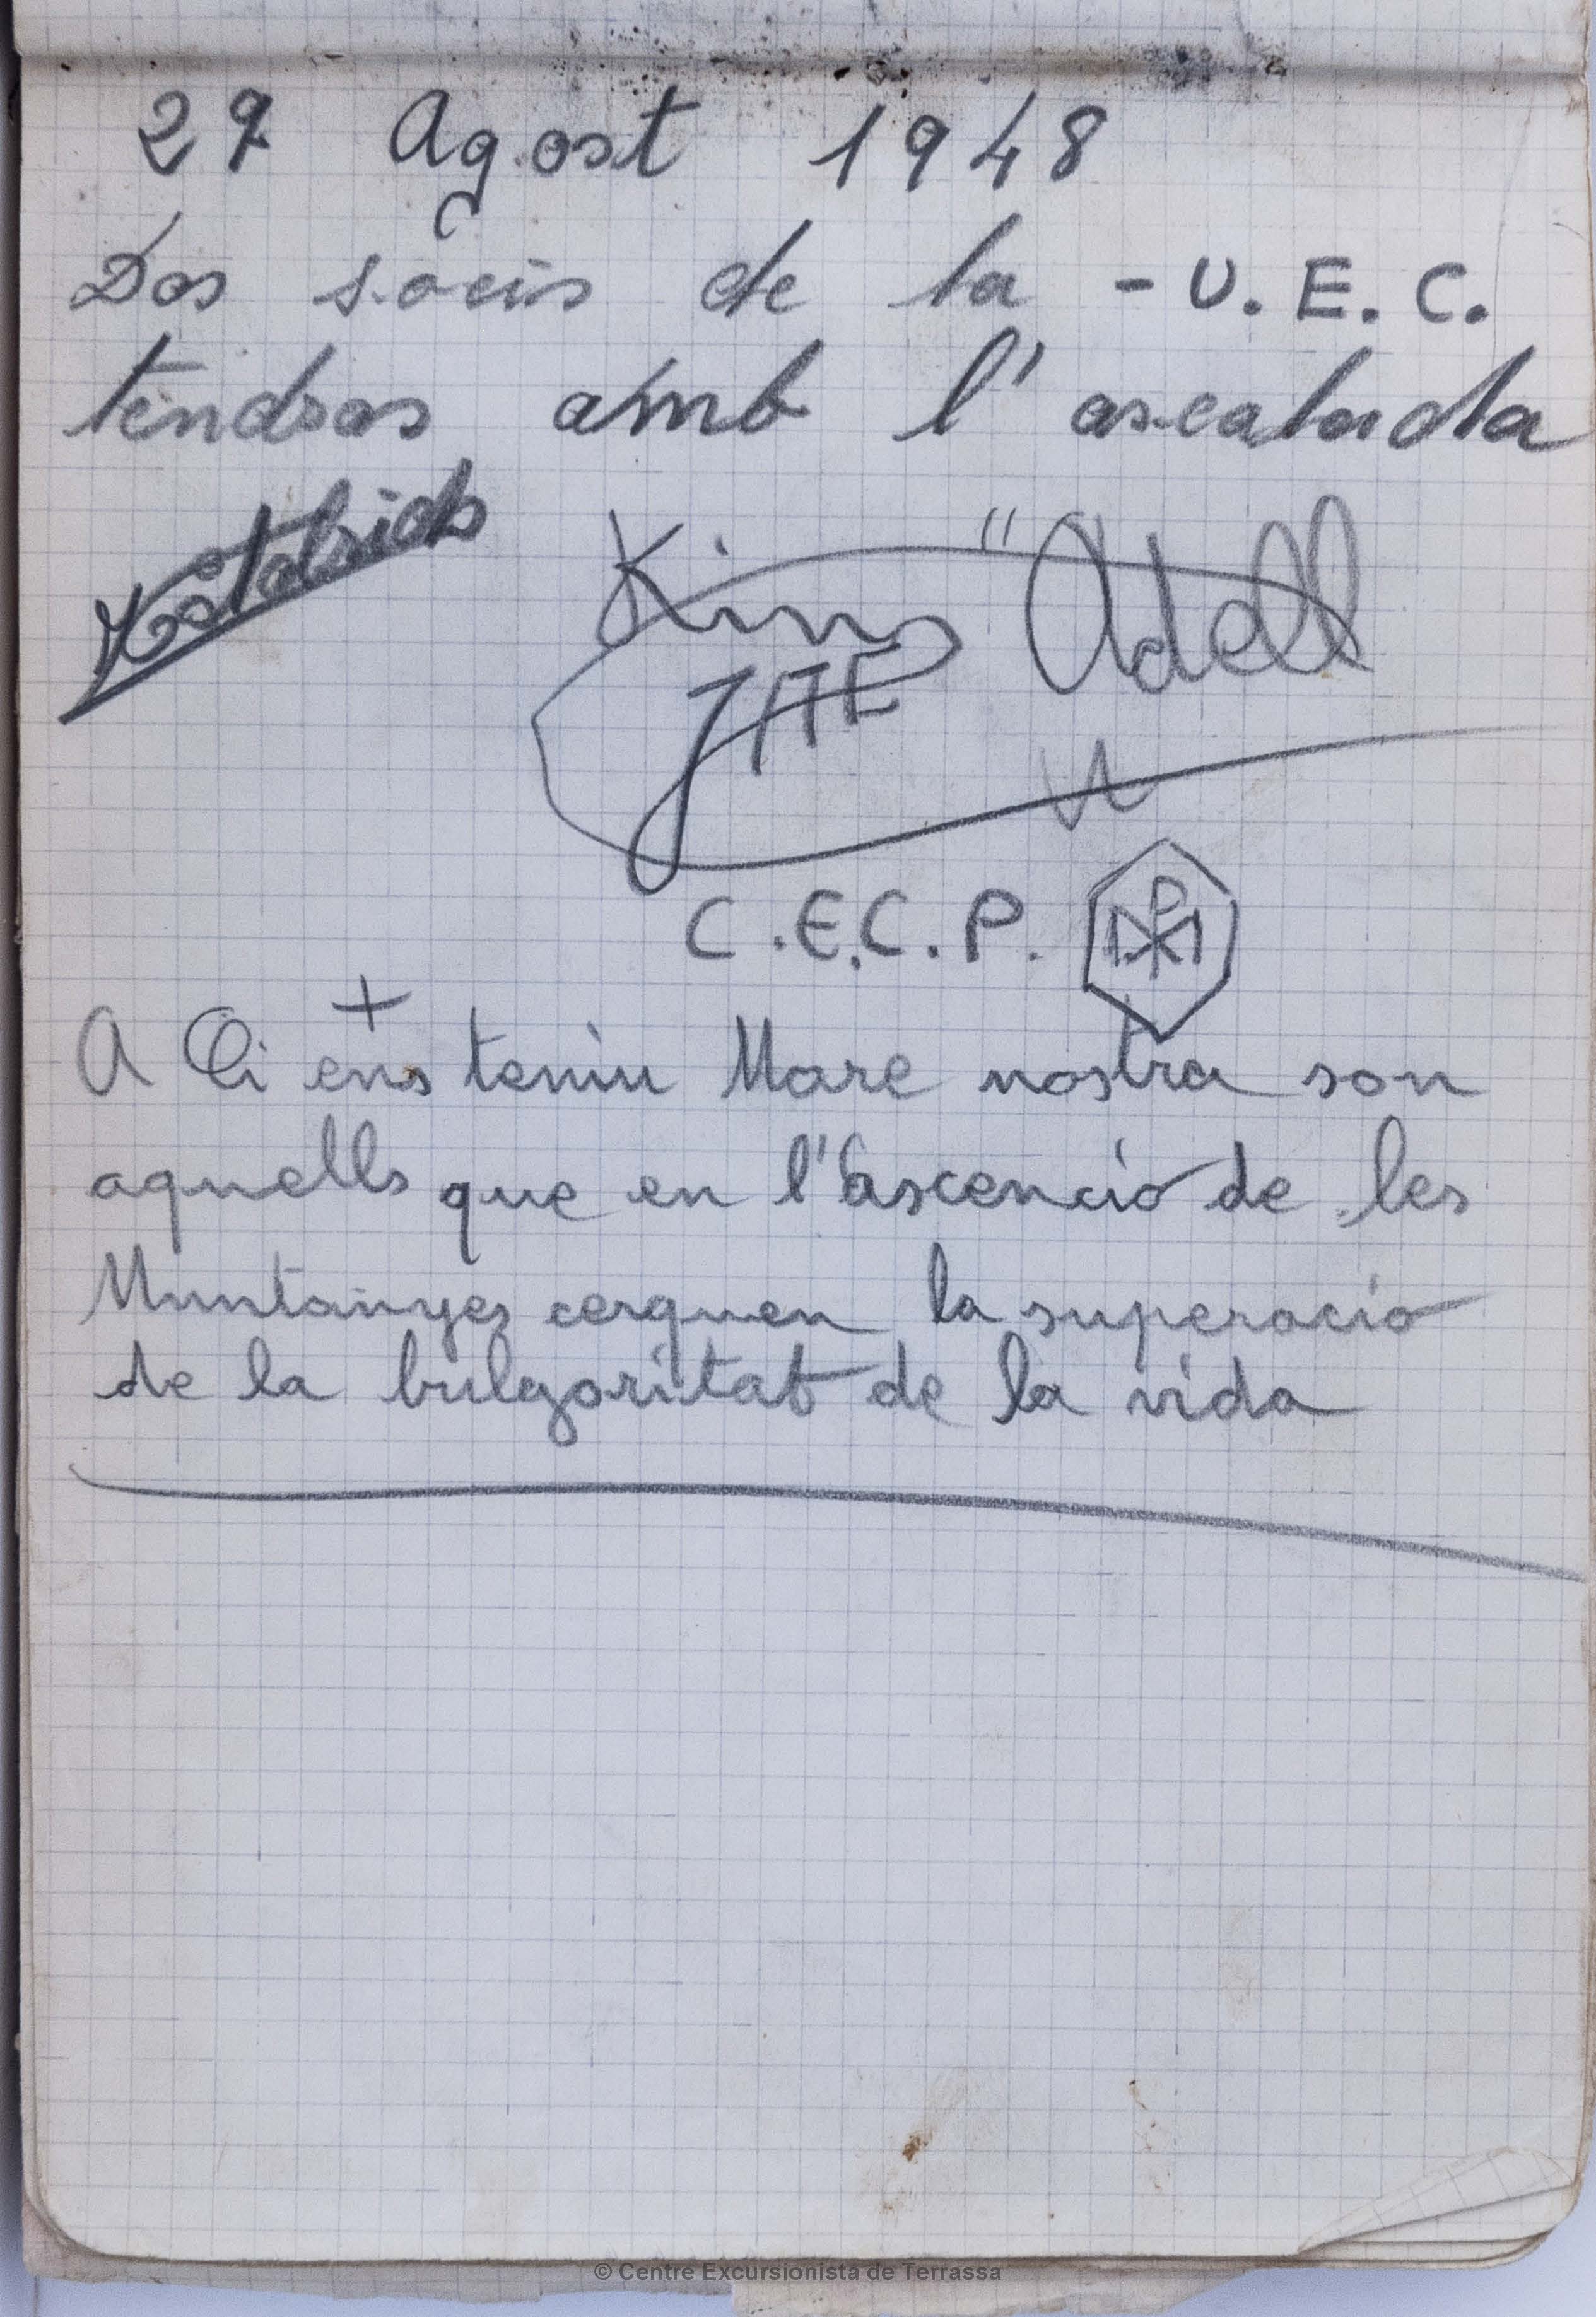 27 Agost 1948
Dos socis de la - U.E.C.
tendras amb l'ascalada
Kim "Adell
C.E.C.P.
+
A Qi ens teniu Mare nostra son
aquells que en l'ascenció de les
Muntanyes cerquen la superació
de la bulgaritat de la vida
© Centre Excursionista de Terrassa